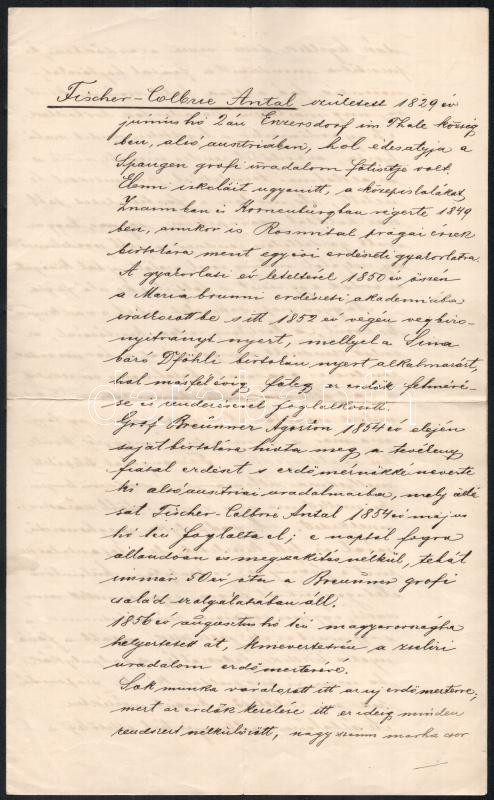 Fischer-Colbrie Antal született 1829 év
június hó 2án Enzersdorf im Thale község
ben, alsó austriában, hol édesatyja a
Spangen grófi uradalom főtisztje volt.
Elemi iskoláit ugyanitt, a középiskolákat
Znaimban és Korneuburgban végezte 1849
ben, amikor is Rosmital prágai érsek
birtokára ment egy évi erdészeti gyakorlatra.
A gyakorlati év leteltével 1850 év őszén
a Mariabrunni erdészeti akadémiába
iratkozott be s itt 1852 év végén végbizo-
nyitványt nyert, mellyel a Sina
báró birtokán nyert alkalmazást,
hol másfél évig főleg az erdők felméré-
se és rendezésével foglalkozott.
Gróf Breünner Ágoston 1854 év elején
saját birtokára hivta meg a tevékeny
fiatal erdészt s erdőmérnökké nevezte
ki alsóaustriai uradalmaiba, mely állá
sát Fischer-Colbrié Antal 1854 év május
hó 1én foglalta el; e naptól fogva
állandóan és megszakitás nélkül, tehát
immár 50 év óta a Breünner grófi
család szolgálatában áll.
1856 év augusztus hó 1én magyarországba
helyeztetett át, kineveztetvén a zselizi
uradalom erdőmesterévé.
Sok munka várakozott itt az új erdőmesterre;
mert az erdők kezelése itt ez ideig minden
rendszert nélkülözött, nagyszámú marha csor